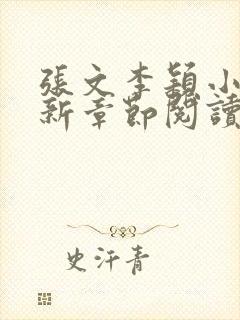 張文李穎小
新章節閱讀
史汗青